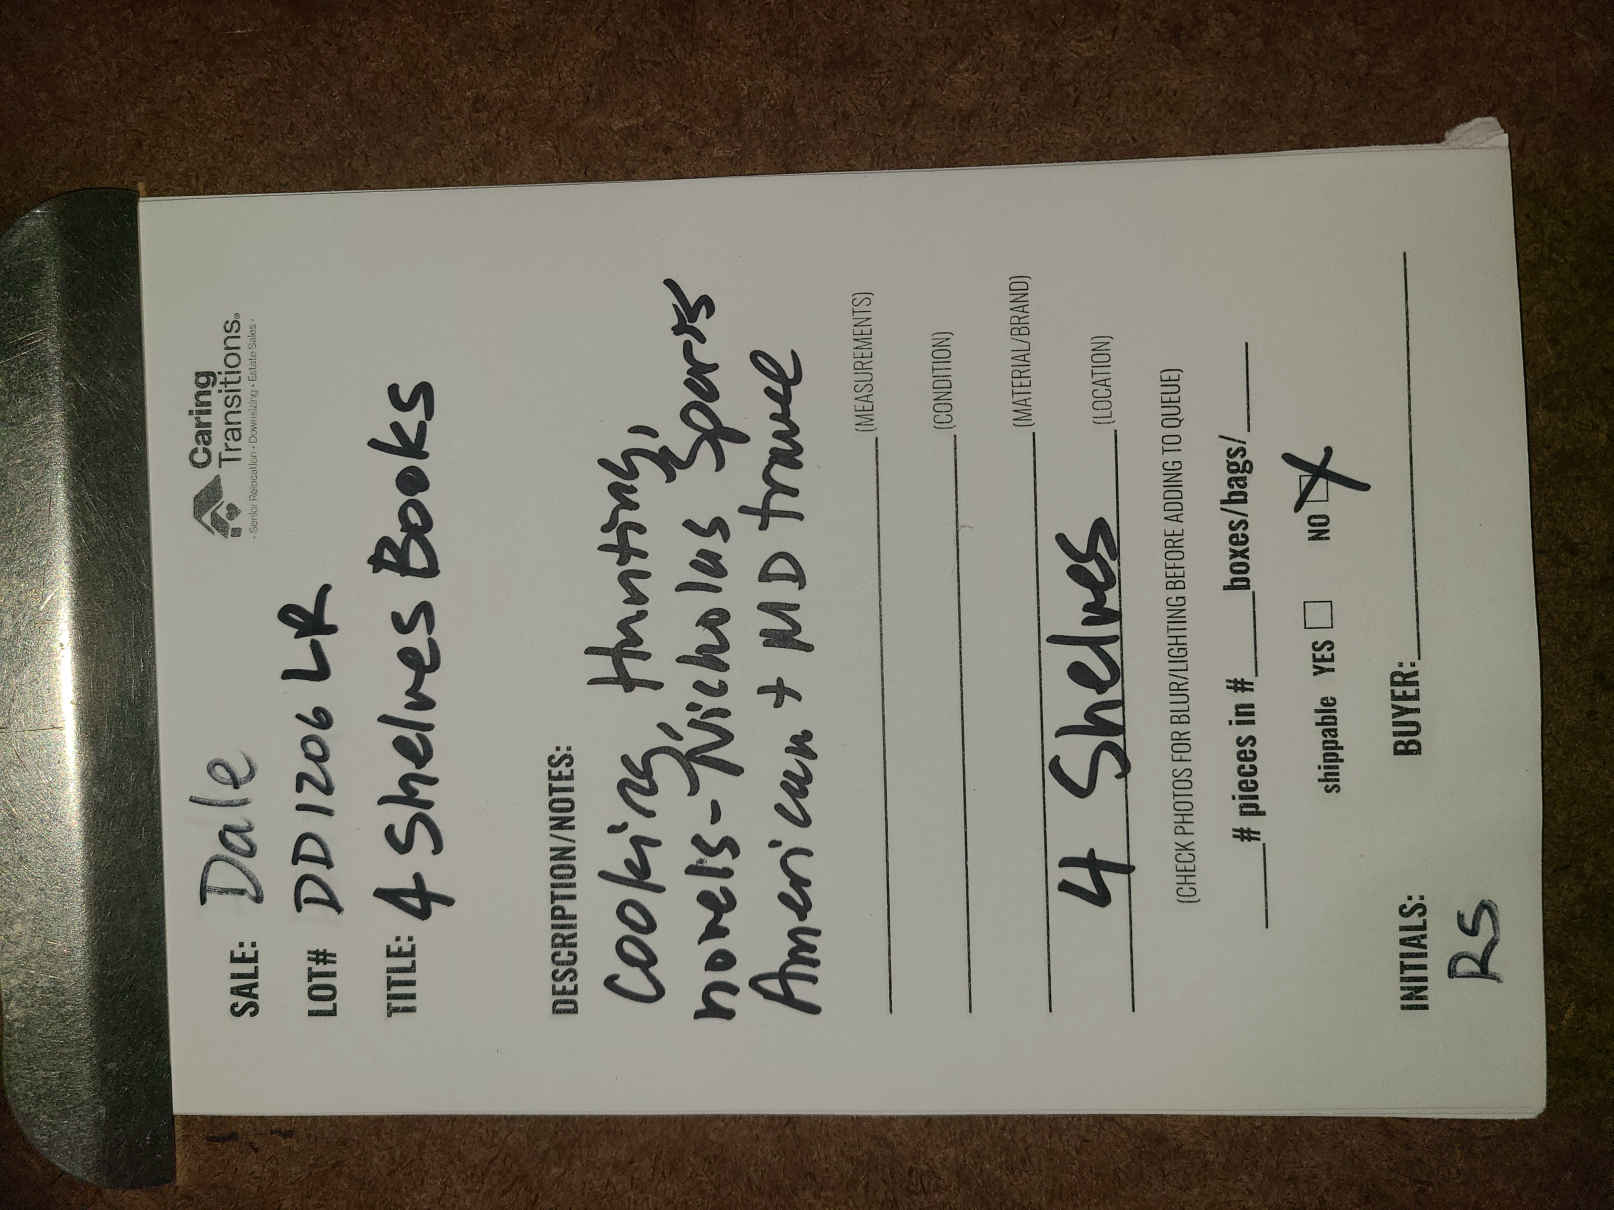 Caring
Transitions®
- Senior Relocation • Downsizing • Estate Sales -
SALE: Dale
LOT# DD1206 LR
TITLE: 4 Shelves Books
DESCRIPTION/NOTES:
Cooking, Hunting,
novels - Nicholas Sparks
American + MD travel
(MEASUREMENTS)
(CONDITION)
(MATERIAL/BRAND)
4 Shelves (LOCATION)
(CHECK PHOTOS FOR BLUR/LIGHTING BEFORE ADDING TO QUEUE)
# pieces in # boxes/bags/
shippable YES NO X
INITIALS: BUYER:
RS